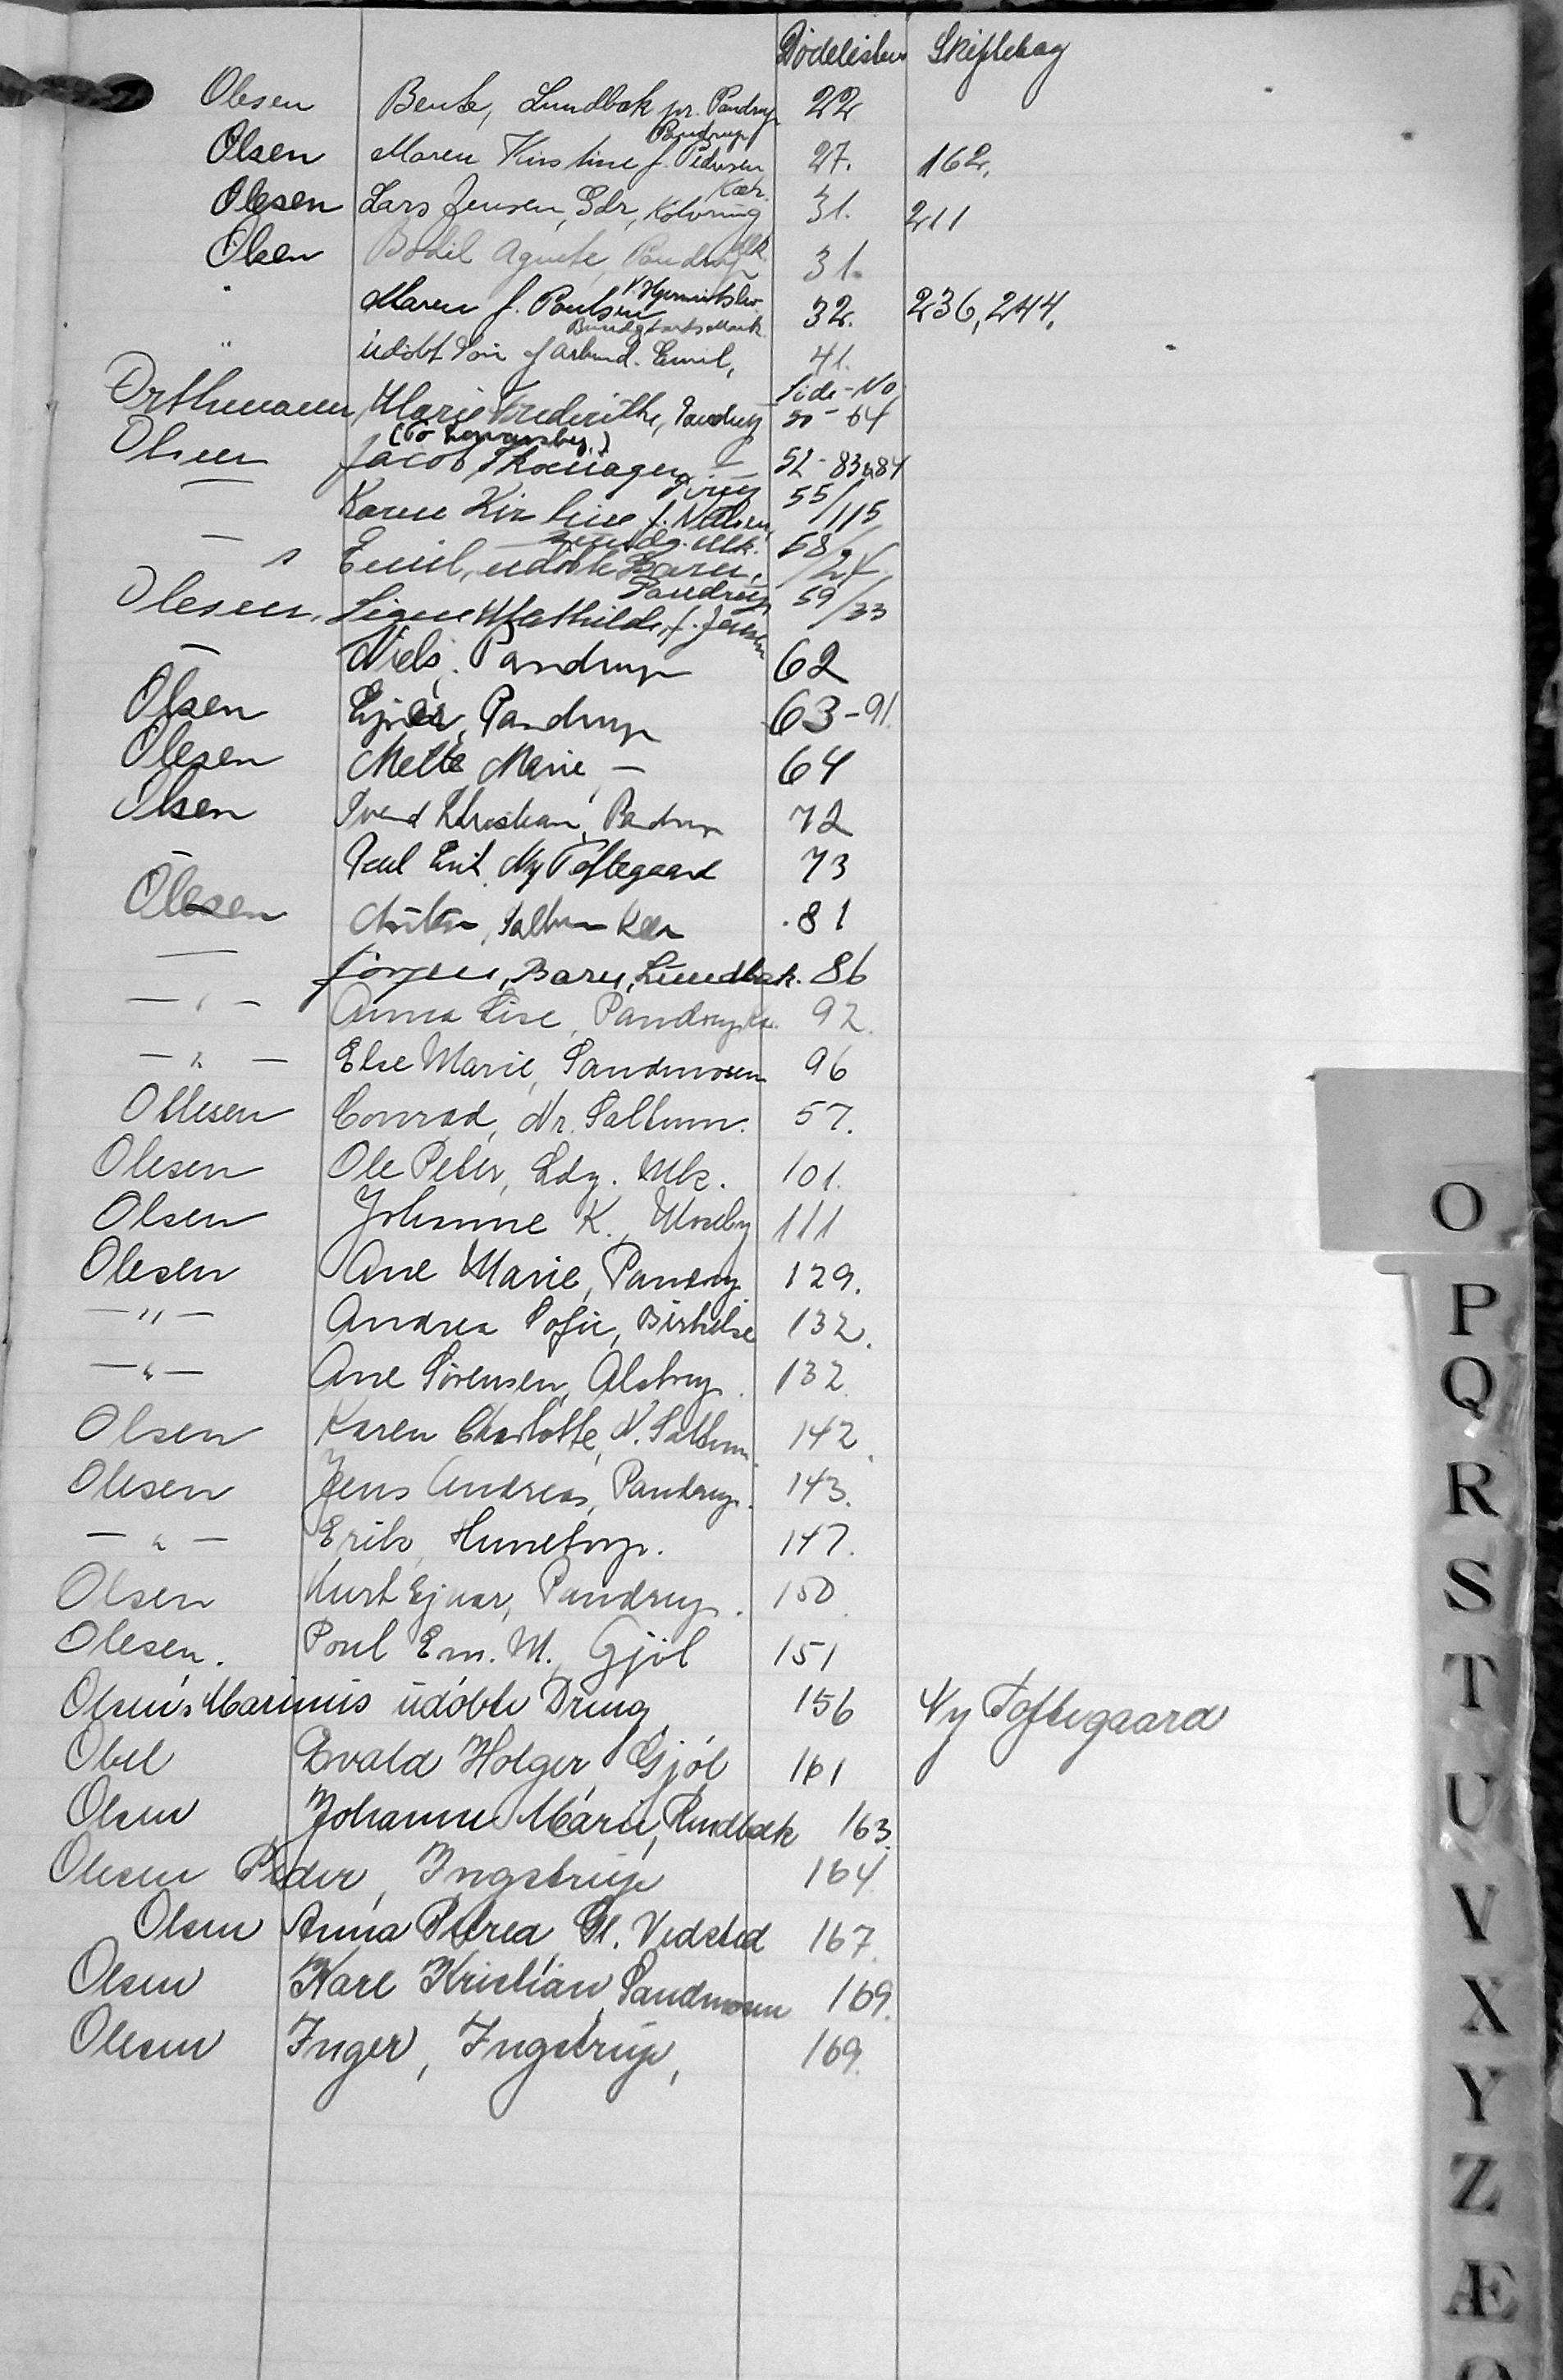 Dødelisten Skiftesag
Olesen Bente, Lundbæk pr. Pandrup 22
Pandrup
Olsen Maren Kirstine f. Pedersen 27. 162.
Kær.
Olesen Lars Jensen, Gdr, Kolvring 31. 211
Mk.
Olsen Bodil Agnete, Pandrup 31.
V. Hjermitslev
" Maren f. Poulsen 32. 236, 244.
Bundgaards Mark
" udöbt Sön af Arbmd. Emil, 41.
Side - No
Orthmann, Marie Frederikke, Pandrup 50 - 64
Olsen Jacob 52 - 83 & 84
— Karen Kirstine f. Nielsen, 55/115
— Emil, udöbte Barn, 58/24
Pandrup
Olesen, Signe Mathilde, f. Jensen 59/33
— Niels, Pandrup 62
Olsen Ejner, Pandrup 63 - 91.
Olesen Mette Marie, — 64
Olsen Svend Christian, Pandrup 72
— Poul Erik, Ny Toftegaard 73
Olesen Saltum Kær 81
— Jörgen, Barn, Lundbæk. 86
— " — Anna Lise, Pandrup 92.
— " — Else Marie, Sandmosen 96
Ollesen Conrad, Nr. Saltum. 57.
Olesen Ole Peter, Ldg. Mk. 101.
Olsen Johanne K., Moseby 111
Olesen Ane Marie, Pandrup 129.
— " — Andrea Sofie, Birkelse 132.
— " — Ane Sørensen, Alstrup. 132.
Olsen Karen Charlotte, N. Saltum. 142.
Olesen Jens Andreas, Pandrup. 143.
— " — Erik, Hunetorp. 147.
Olsen Kurt Ejnar, Pandrup. 150.
Olesen. Poul Em. M. Gjöl 151
Olsen's Marinus udöbte Dreng 156 Ny Toftegaard
Obel Evald Holger Gjöl 161
Olsen Johanne Marie, Rendbæk 163.
Olesen Peder, Ingstrup 164
Olsen Anna Petrea Gl. Vedsted 167.
Olsen Karl Kristian Sandmosen 169.
Olesen Inger, Ingstrup, 169.
O
P
Q
R
S
T
U
V
X
Y
Z
Æ